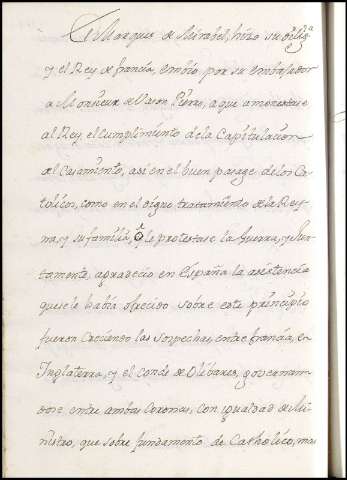 El Marques de Mirabel, hizo su delig.ª
y el Rey de francia, embio por su embajador
a Monsieur de
al Rey, el Cumplimiento dela Capitulacion
del Casamiento, asi en el buen pasage delos Ca-
tolicos, como en el digne tractamiento de la Rey-
na, y su familia, ô le protestase la Guerra, y Jun-
tamente, agradecio en España la asistencia
quesele habia ofrecido sobre este principio
fueron Creciendo las sospechas, entre francia, è
Inglaterra, y el Conde de Olibares, governan-
dose entre ambas Coronas, con igualdad de Mi-
nistro, que sobre fundamento de Catholico, mas